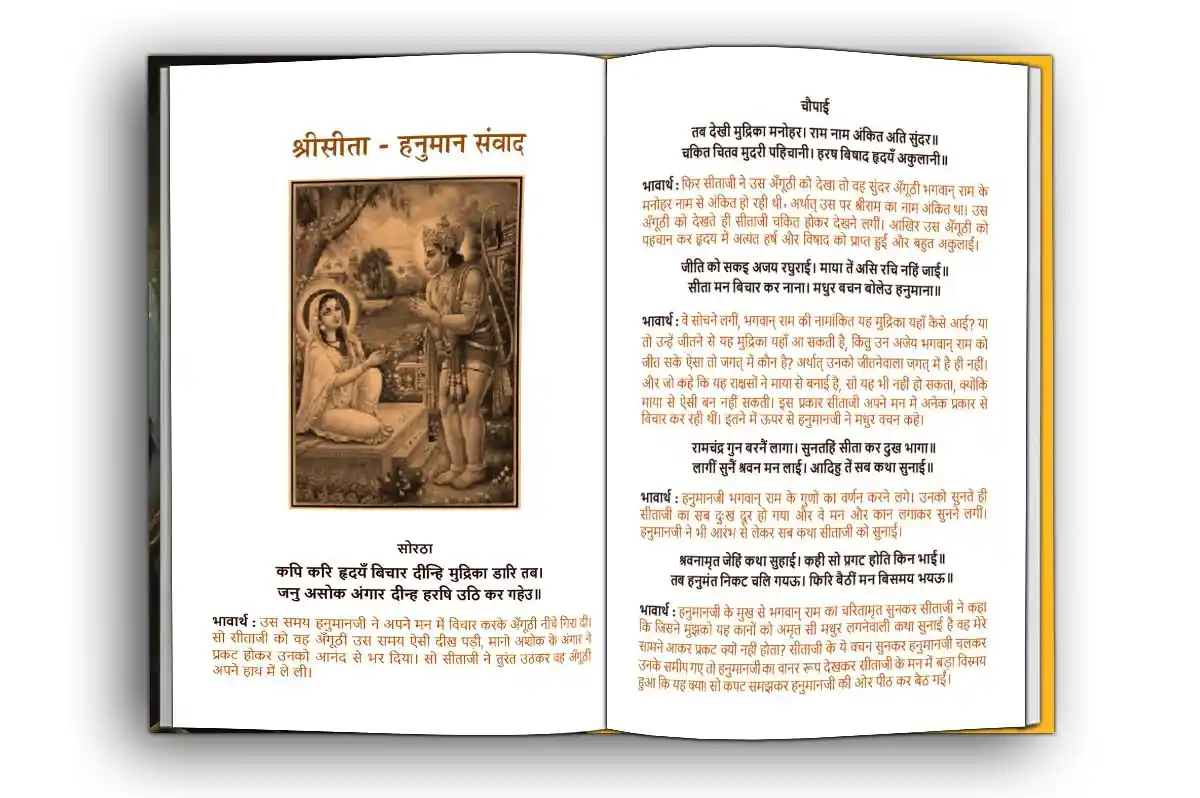 श्रीसीता - हनुमान संवाद
सोरठा
कपि करि हृदयँ बिचार दीन्हि मुद्रिका डारि तब।
जनु असोक अंगार दीन्ह हरषि उठि कर गहेउ॥
भावार्थ : उस समय हनुमानजी ने अपने मन में विचार करके अँगूठी नीचे गिरा दी।
सो सीताजी को वह अँगूठी उस समय ऐसी दीख पड़ी, मानो अशोक के अंगार ने
प्रकट होकर उनको आनंद से भर दिया। सो सीताजी ने तुरंत उठकर वह अँगूठी
अपने हाथ में ले ली।
चौपाई
तब देखी मुद्रिका मनोहर। राम नाम अंकित अति सुंदर॥
चकित चितव मुदरी पहिचानी। हरष बिषाद हृदयँ अकुलानी॥
भावार्थ : फिर सीताजी ने उस अँगूठी को देखा तो वह सुंदर अँगूठी भगवान् राम के
मनोहर नाम से अंकित हो रही थी, अर्थात् उस पर श्रीराम का नाम अंकित था। उस
अँगूठी को देखते ही सीताजी चकित होकर देखने लगीं। आखिर उस अँगूठी को
पहचान कर हृदय में अत्यंत हर्ष और विषाद को प्राप्त हुईं और बहुत अकुलाईं।
जीति को सकइ अजय रघुराई। माया तें असि रचि नहिं जाई॥
सीता मन बिचार कर नाना। मधुर बचन बोलेउ हनुमाना॥
भावार्थ : वे सोचने लगीं, भगवान् राम की नामांकित यह मुद्रिका यहाँ कैसे आई? या
तो उन्हें जीतने से यह मुद्रिका यहाँ आ सकती है, किंतु उन अजेय भगवान् राम को
जीत सके ऐसा तो जगत् में कौन है? अर्थात् उनको जीतनेवाला जगत् में है ही नहीं।
और जो कहे कि यह राक्षसों ने माया से बनाई है, सो यह भी नहीं हो सकता, क्योंकि
माया से ऐसी बन नहीं सकती। इस प्रकार सीताजी अपने मन में अनेक प्रकार से
विचार कर रही थीं। इतने में ऊपर से हनुमानजी ने मधुर वचन कहे।
रामचंद्र गुन बरनैं लागा। सुनतहिं सीता कर दुख भागा॥
लागीं सुनैं श्रवन मन लाई। आदिहु तें सब कथा सुनाई॥
भावार्थ : हनुमानजी भगवान् राम के गुणों का वर्णन करने लगे। उनको सुनते ही
सीताजी का सब दुःख दूर हो गया और वे मन और कान लगाकर सुनने लगीं।
हनुमानजी ने भी आरंभ से लेकर सब कथा सीताजी को सुनाई।
श्रवनामृत जेहिं कथा सुहाई। कही सो प्रगट होति किन भाई॥
तब हनुमंत निकट चलि गयऊ। फिरि बैठीं मन बिसमय भयऊ॥
भावार्थ : हनुमानजी के मुख से भगवान् राम का चरितामृत सुनकर सीताजी ने कहा
कि जिसने मुझको यह कानों को अमृत सी मधुर लगनेवाली कथा सुनाई है वह मेरे
सामने आकर प्रकट क्यों नहीं होता? सीताजी के ये वचन सुनकर हनुमानजी चलकर
उनके समीप गए तो हनुमानजी का वानर रूप देखकर सीताजी के मन में बड़ा विस्मय
हुआ कि यह क्या! सो कपट समझकर हनुमानजी की ओर पीठ कर बैठ गईं।